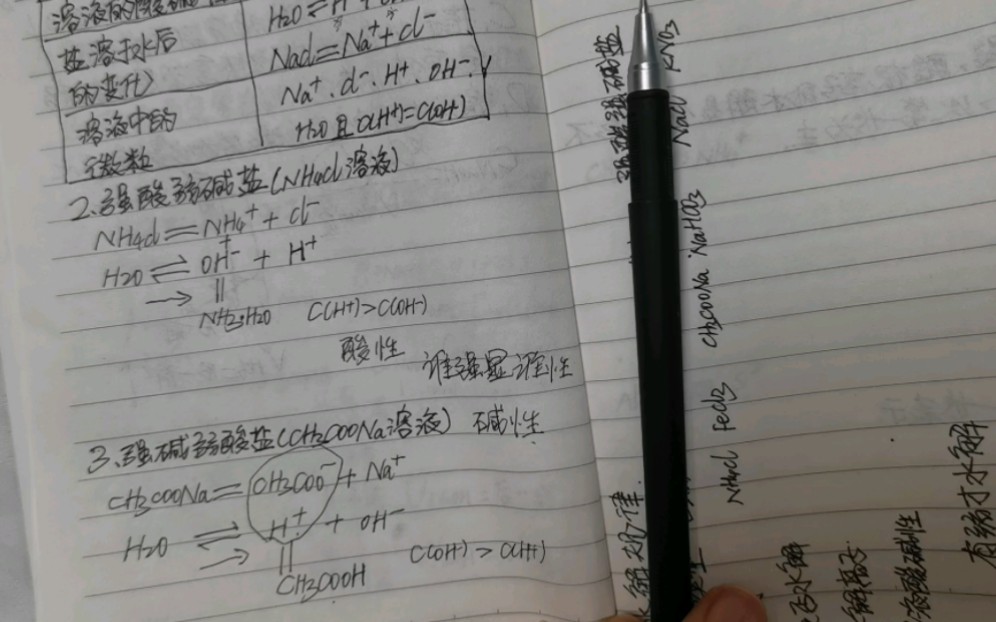 溶液的酸碱性 H2O⇌H⁺+OH⁻
盐溶于水后 NaCl=Na⁺+Cl⁻
的变化 Na⁺、Cl⁻、H⁺、OH⁻、
溶液中的 H2O且C(H⁺)=C(OH⁻)
微粒
2.强酸弱碱盐(NH4Cl溶液)
NH4Cl=NH4⁺+Cl⁻
+
H2O⇌OH⁻+H⁺
→ ||
NH3·H2O C(H+)>C(OH-)
酸性 谁强显谁性
3.强碱弱酸盐(CH3COONa溶液) 碱性
CH3COONa=CH3COO⁻+Na⁺
H2O⇌H⁺+OH⁻
→ ||
C(OH-)>C(H+)
CH3COOH
强酸强碱盐
NaCl KNO3
CH3COONa NaHCO3
NH4Cl FeCl3
水解规律
有弱才水解